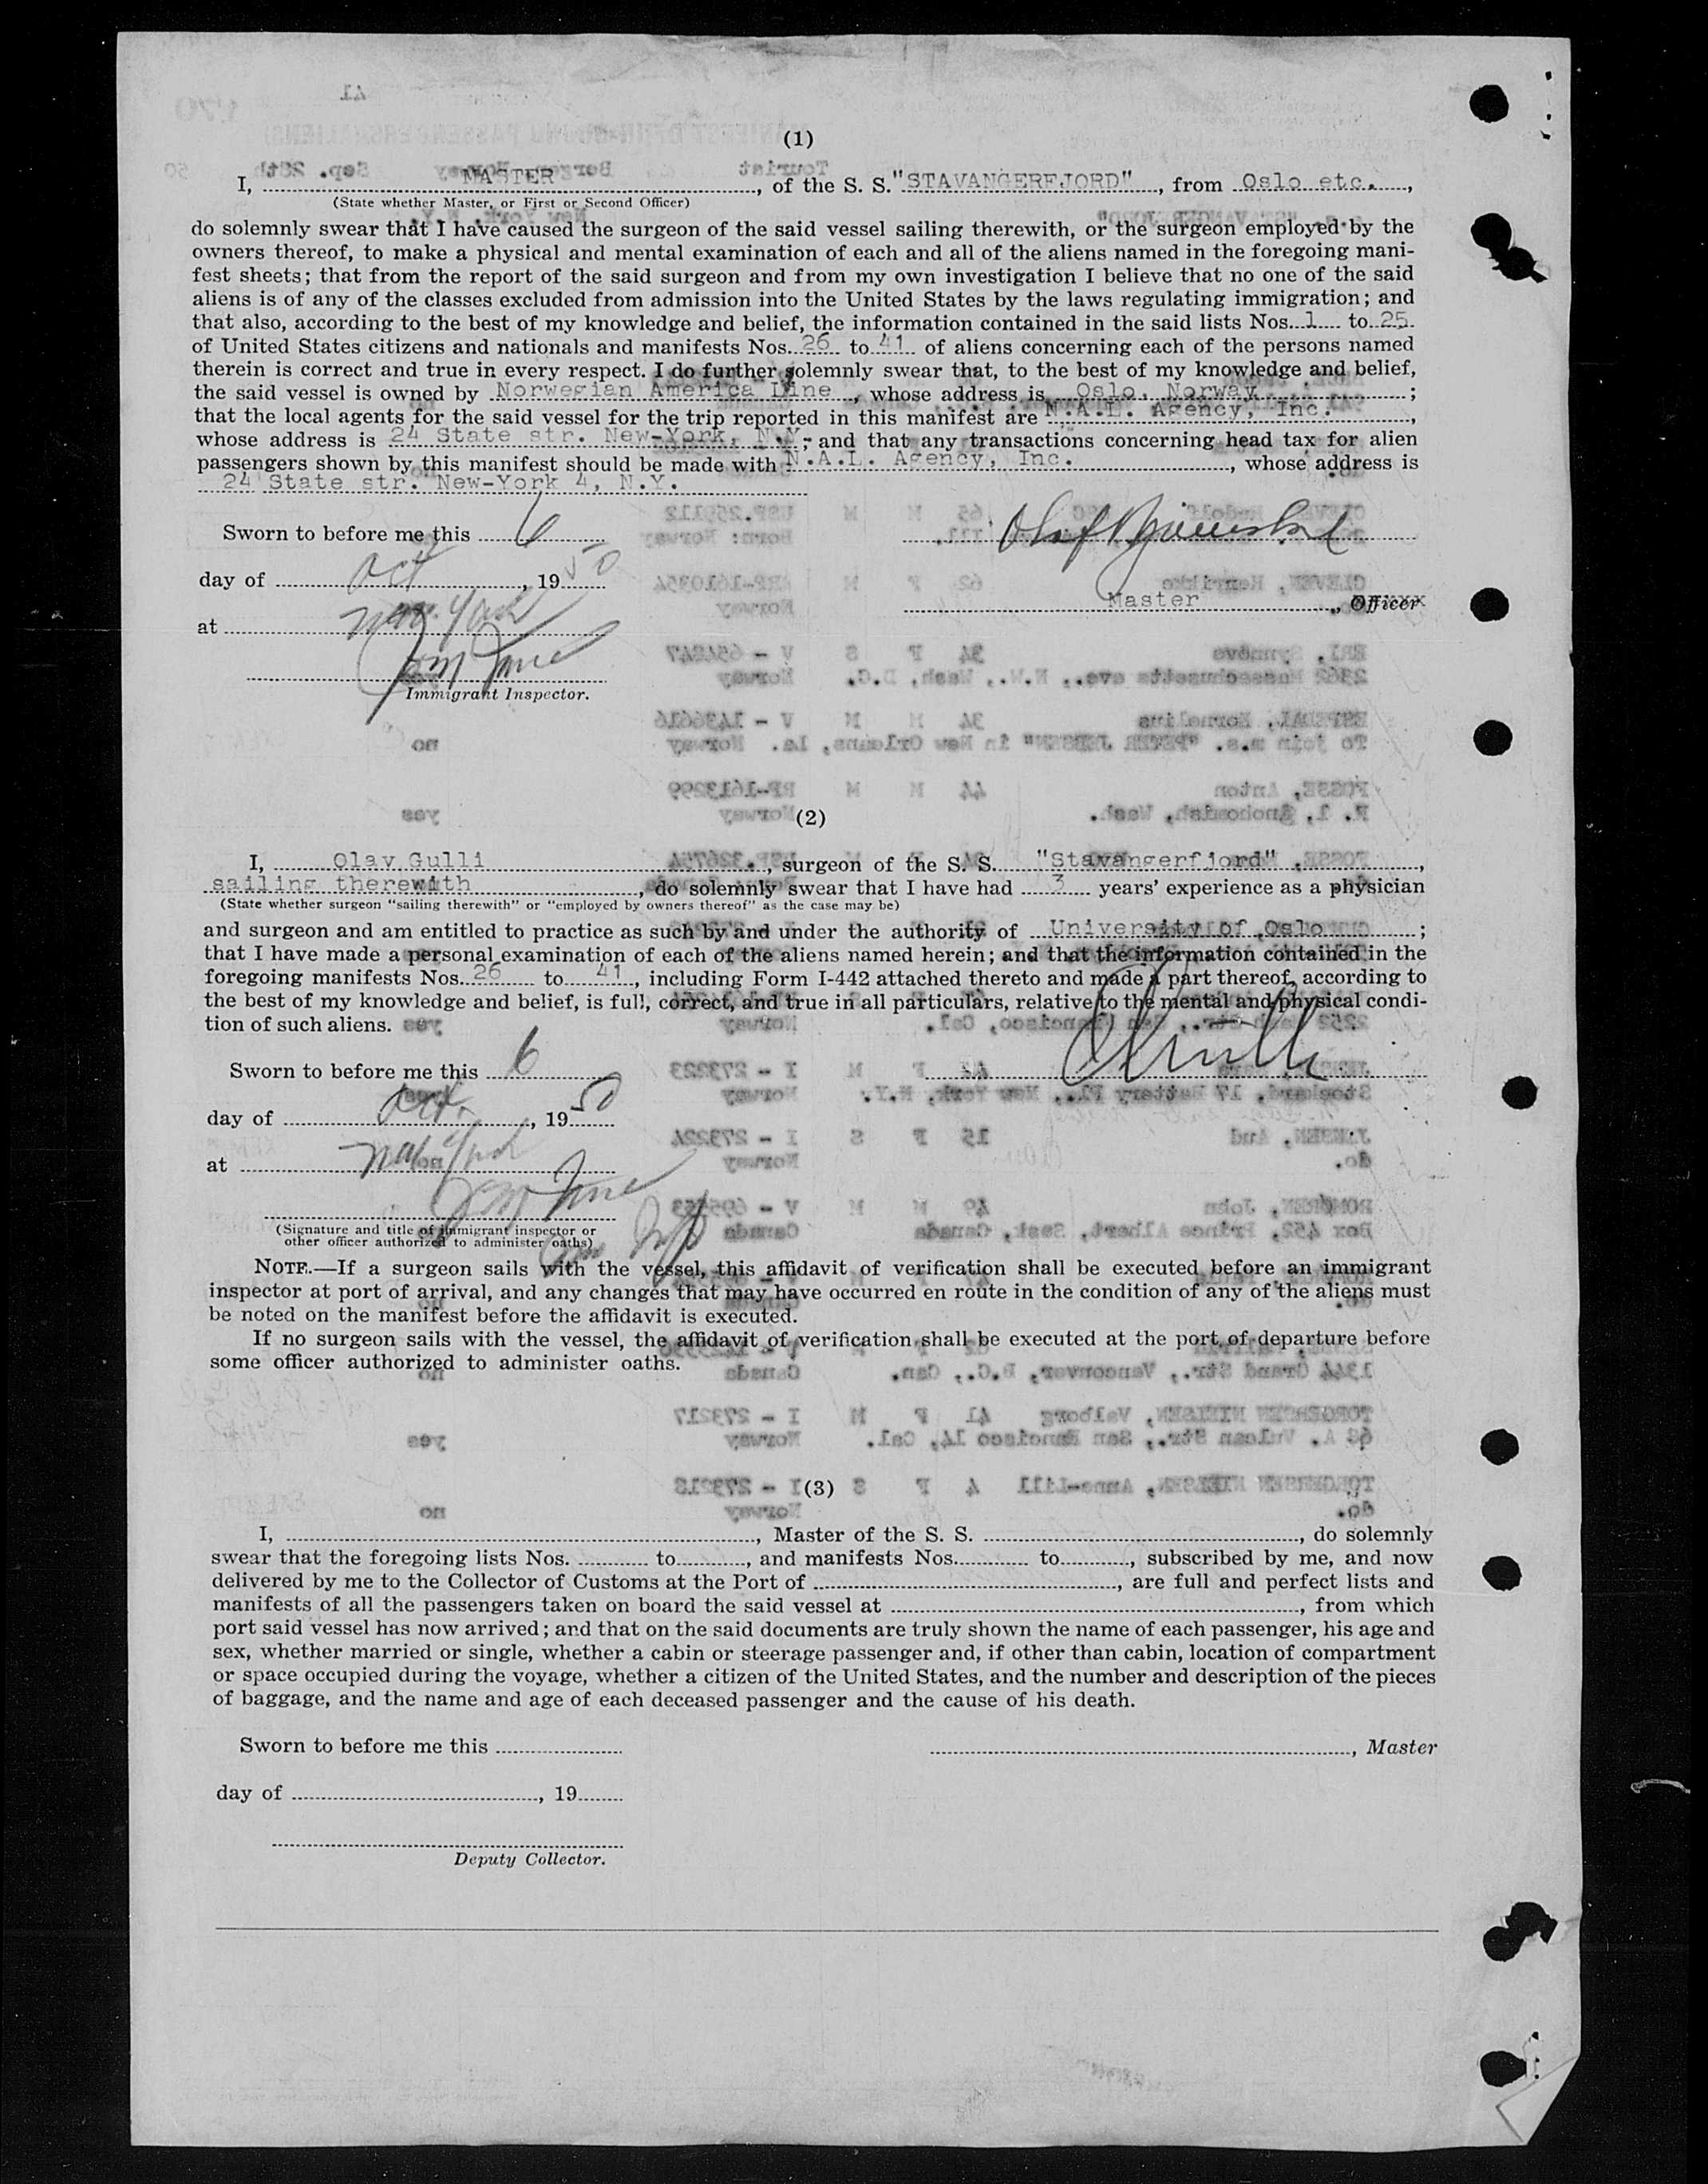 (1)
I, MASTER, of the S. S. "STAVANGERFJORD", from Oslo etc.,
(State whether Master, or First or Second Officer)
do solemnly swear that I have caused the surgeon of the said vessel sailing therewith, or the surgeon employed by the
owners thereof, to make a physical and mental examination of each and all of the aliens named in the foregoing mani-
fest sheets; that from the report of the said surgeon and from my own investigation I believe that no one of the said
aliens is of any of the classes excluded from admission into the United States by the laws regulating immigration; and
that also, according to the best of my knowledge and belief, the information contained in the said lists Nos. 1 to 25
of United States citizens and nationals and manifests Nos. 26 to 41 of aliens concerning each of the persons named
therein is correct and true in every respect. I do further solemnly swear that, to the best of my knowledge and belief,
the said vessel is owned by Norwegian America Line, whose address is Oslo, Norway;
that the local agents for the said vessel for the trip reported in this manifest are N.A.L. Agency, Inc.,
whose address is 24 State str. New-York, N.Y.; and that any transactions concerning head tax for alien
passengers shown by this manifest should be made with N.A.L. Agency, Inc., whose address is
24 State str. New-York 4, N.Y.
Sworn to before me this 6
day of Oct, 1950
Master, Officer
at New York
Immigrant Inspector.
(2)
I, Olav Gulli, surgeon of the S. S. "Stavangerfjord",
sailing therewith, do solemnly swear that I have had 3 years' experience as a physician
(State whether surgeon "sailing therewith" or "employed by owners thereof" as the case may be)
and surgeon and am entitled to practice as such by and under the authority of University of Oslo;
that I have made a personal examination of each of the aliens named herein; and that the information contained in the
foregoing manifests Nos. 26 to 41, including Form I-442 attached thereto and made a part thereof, according to
the best of my knowledge and belief, is full, correct, and true in all particulars, relative to the mental and physical condi-
tion of such aliens.
Sworn to before me this 6
day of Oct., 1950
at New York
(Signature and title of immigrant inspector or
other officer authorized to administer oaths)
NOTE.—If a surgeon sails with the vessel, this affidavit of verification shall be executed before an immigrant
inspector at port of arrival, and any changes that may have occurred en route in the condition of any of the aliens must
be noted on the manifest before the affidavit is executed.
If no surgeon sails with the vessel, the affidavit of verification shall be executed at the port of departure before
some officer authorized to administer oaths.
(3)
I, , Master of the S. S. , do solemnly
swear that the foregoing lists Nos. to , and manifests Nos. to , subscribed by me, and now
delivered by me to the Collector of Customs at the Port of , are full and perfect lists and
manifests of all the passengers taken on board the said vessel at , from which
port said vessel has now arrived; and that on the said documents are truly shown the name of each passenger, his age and
sex, whether married or single, whether a cabin or steerage passenger and, if other than cabin, location of compartment
or space occupied during the voyage, whether a citizen of the United States, and the number and description of the pieces
of baggage, and the name and age of each deceased passenger and the cause of his death.
Sworn to before me this
, Master
day of , 19
Deputy Collector.